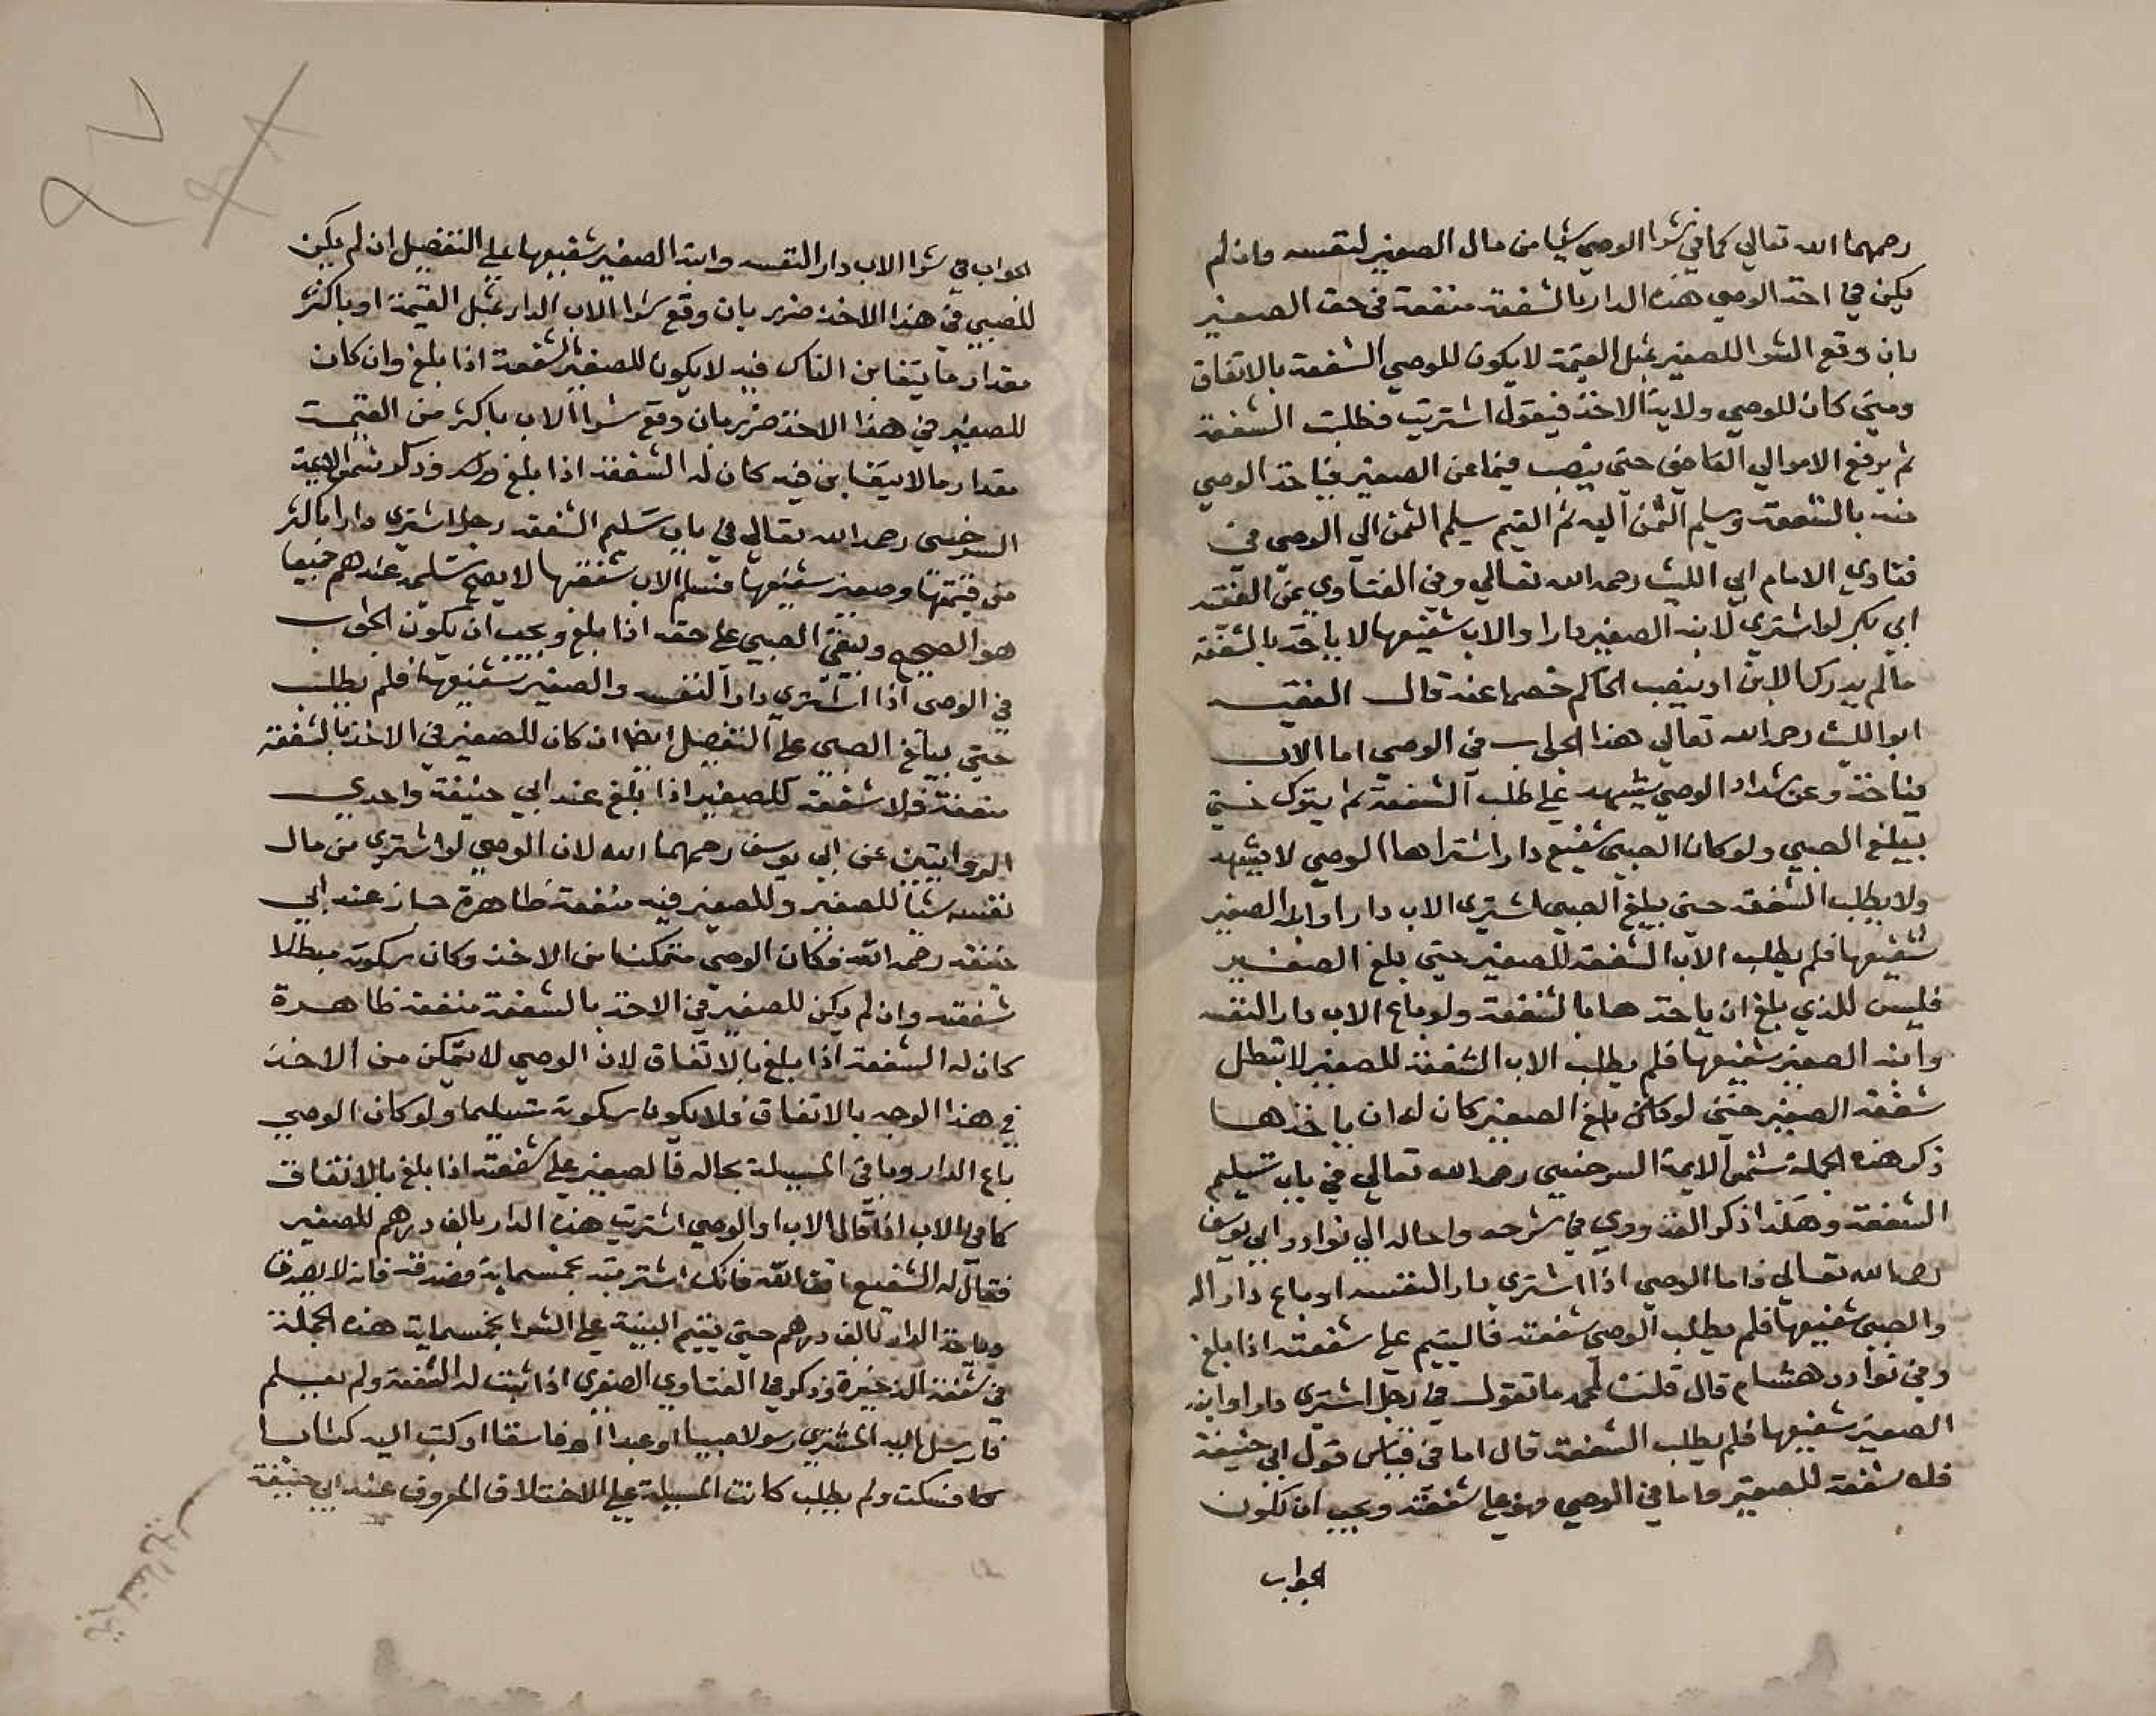 رحمهما الله تعالي كما في شرا الوصي شيا من مال الصغير لنفسه وان لم
يكن في اخذ الوصي هذه الدار بالشفعة منفعة في حق الصغير
بان وقع الشرا للصغير بمثل القيمة لا يكون للوصي الشفعة بالاتفاق
ومتي كان للوصي ولاية الاخذ فيقول اشتريت وطلبت الشفعة
ثم يرفع الامر الي القاضي حتى ينصب قيما عن الصغير فياخذ الوصي
منه بالشفعة ويسلم الثمن اليه ثم القيم يسلم الثمن الي الوصي في
فتاوي الامام ابي الليث رحمه الله تعالي وفي الفتاوي عن الفقيه
ابي بكر لو اشتري لابنه الصغير دارا والاب شفيعها لا ياخذ بالشفعة
مالم يدرك الابن او ينصب الحاكم خصما عنه قال الفقيه
ابو الليث رحمه الله تعالي هذا الجواب في الوصي اما الاب
فياخذ وعن شداد الوصي يشهد علي طلب الشفعة ثم يترك حتي
يبلغ الصبي ولو كان الصبي شفيع دار اشتراها الوصي لا يشهد
ولا يطلب الشفعة حتي يبلغ الصبي اشتري الاب دارا وابنه الصغير
شفيعها فلم يطلب الاب الشفعة للصغير حتي بلغ الصغير
فليس للذي بلغ ان ياخذها بالشفعة ولو باع الاب دارا لنفسه
وابنه الصغير شفيعها فلم يطلب الاب الشفعة للصغير لا تبطل
شفعة الصغير حتى لو بلغ الصغير كان له ان ياخذها
ذكر هذه الجملة شمس الايمة السرخسي رحمه الله تعالي في باب تسليم
الشفعة وهكذا ذكر القدوري في شرحه واحاله الي نوادر ابي يوسف
رحمه الله تعالي واما الوصي اذا اشتري دارا لنفسه او باع دارا له
والصبي شفيعها فلم يطلب الوصي شفعته فاليتيم علي شفعته اذا بلغ
وفي نوادر هشام قال قلت لمحمد ما تقول في رجل اشتري دارا وابنه
الصغير شفيعها فلم يطلب الشفعة قال اما في قياس قول ابي حنيفة
فله شفعة للصغير واما في الوصي فهو علي شفعته ويجب ان تكون
الجواب
الجواب في شرا الاب دارا لنفسه وابنه الصغير شفيعها علي التفصيل ان لم يكن
للصبي في هذا الاخذ ضرر بان وقع شرا الاب الدار بمثل القيمة او باكثر
مقدار ما يتغابن الناس فيه لا يكون للصغير الشفعة اذا بلغ وان كان
للصغير في هذا الاخذ ضرر بان وقع شرا الاب باكثر من القيمة
مقدار مالا يتغابن فيه كان له الشفعة اذا بلغ وذكر شمس الايمة
السرخسي رحمه الله تعالي في باب تسليم الشفعة رجل اشتري دارا باكثر
من قيمتها وصغير شفيعها فسلم الاب شفعتها لا يصح تسليمه عندهم جميعا
هو الصحيح ويبقي الصبي علي حقه اذا بلغ ويجب ان يكون الجواب
في الوصي اذا اشتري دارا لنفسه والصغير شفيعها فلم يطلب
حتي يبلغ الصبي علي التفصيل ايضا ان كان للصغير في الاخذ بالشفعة
منفعة فلا شفعة للصغير اذا بلغ عند ابي حنيفة واحدي
الروايتين عن ابي يوسف رحمهما الله لان الوصي لو اشتري من مال
نفسه شيا للصغير وللصغير فيه منفعة ظاهرة جاز عند ابي
حنيفة رحمه الله فكان الوصي متمكنا من الاخذ وكان سكوته مبطلا
شفعته وان لم يكن للصغير في الاخذ بالشفعة منفعة ظاهرة
كان له الشفعة اذا بلغ بالاتفاق لان الوصي لا يتمكن من الاخذ
في هذا الوجه بالاتفاق فلا يكون سكوته تسليما ولو كان الوصي
باع الدار وباقي المسيلة بحاله فالصغير علي شفعته اذا بلغ بالاتفاق
كما في الاب اذا قال الاب او الوصي اشتريت هذه الدار بالف درهم للصغير
فقال له الشفيع اتق الله فانك اشتريته بخمسماية فصدقه فانه لا يصدق
وياخذ الدار بالف درهم حتي يقيم البينة علي الشرا بخمسماية هذه الجملة
في شفعة الذخيرة وذكر في الفتاوي الصغري اذا ثبت له الشفعة ولم يعلم
فارسل اليه المشتري رسولا صبيا او عبدا او فاسقا او كتب اليه كتابا
فسكت ولم يطلب كانت المسيلة علي الاختلاف المعروف عند ابي حنيفة